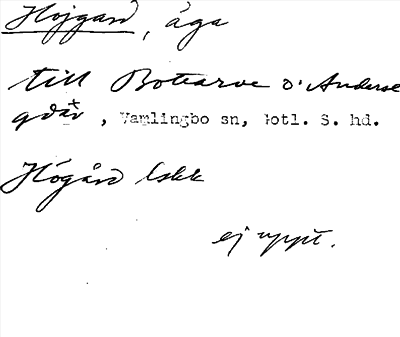 Höjgard, äga
till Botvarve o. Anderse
gdar, Vamlingbo sn, Gotl. S. hd.
Högård lskk
ej uppt.